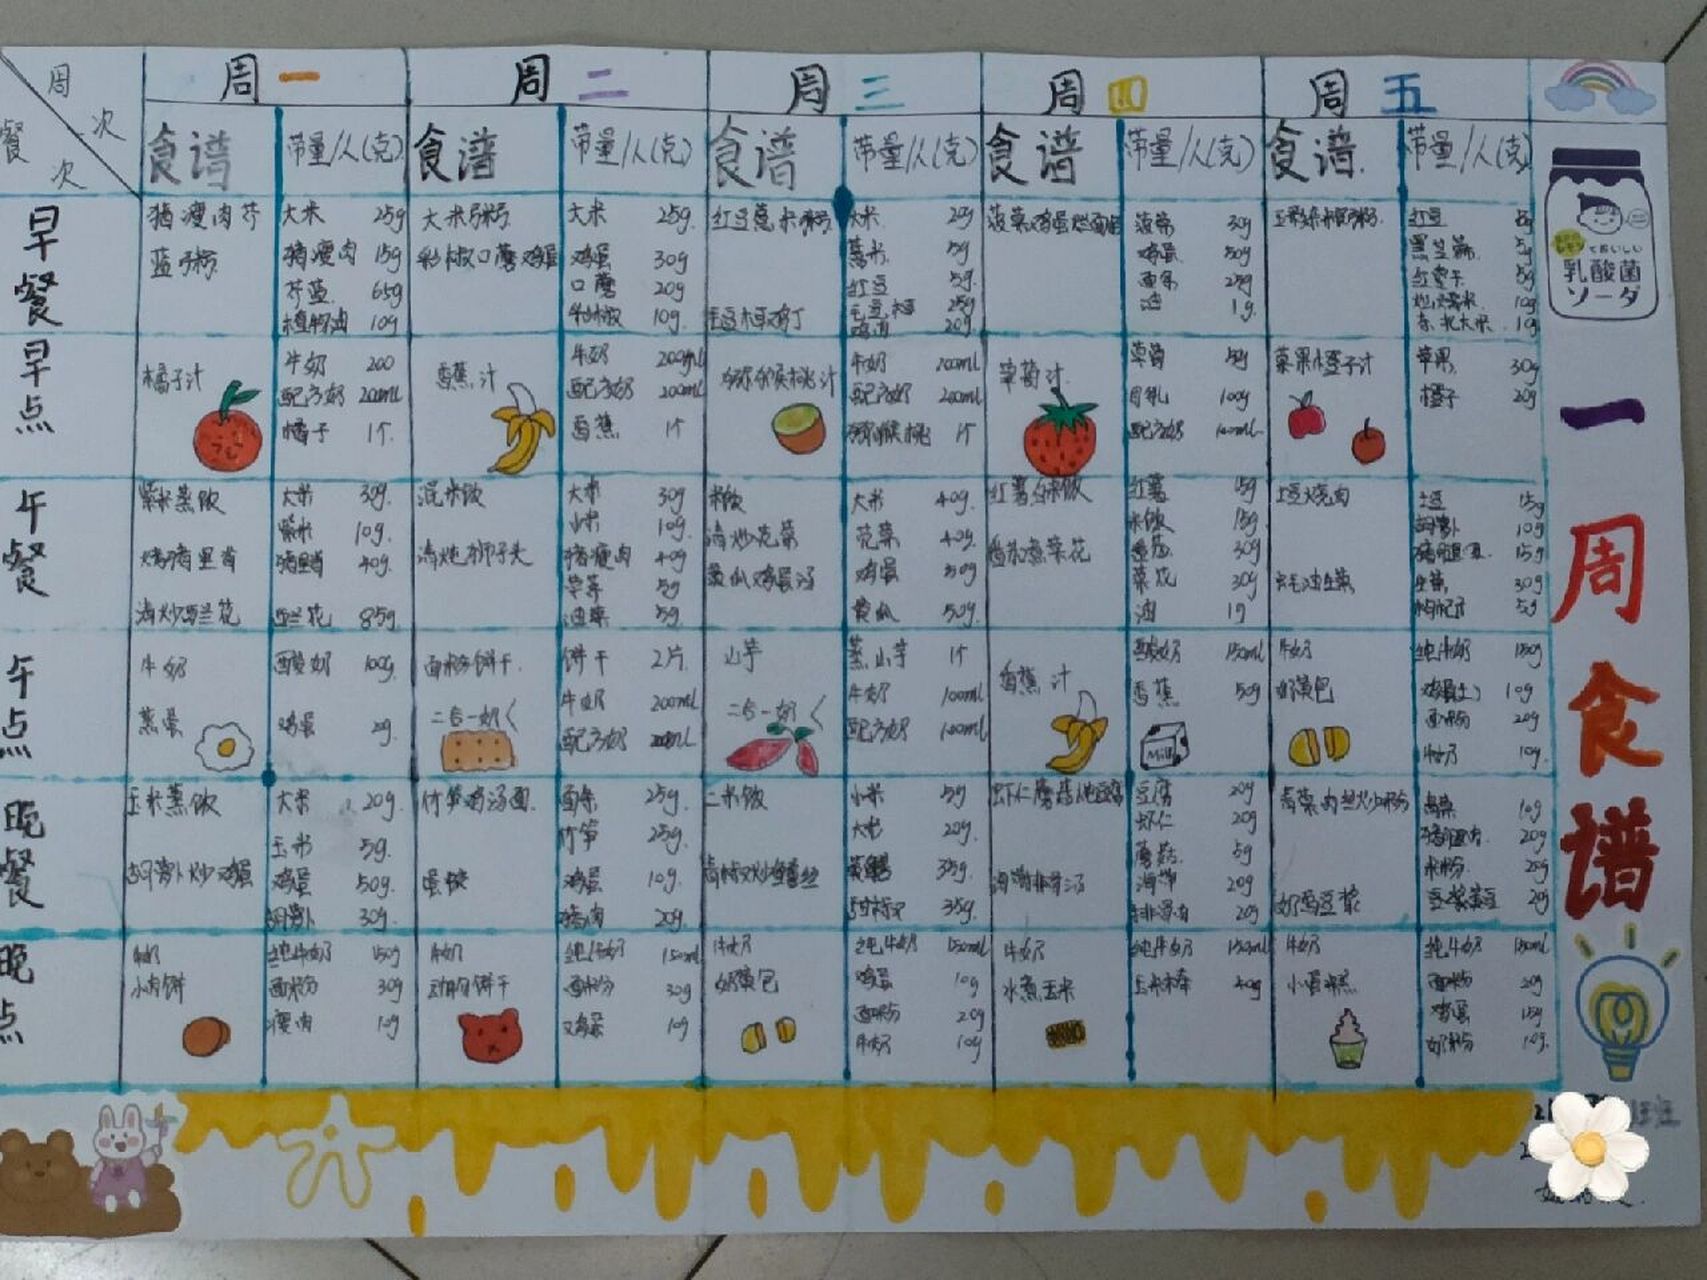 周次
餐次
周一
周二
周三
周四
周五
食谱 带量/人(克) 食谱 带量/人(克) 食谱 带量/人(克) 食谱 带量/人(克) 食谱 带量/人(克)
早餐
猪瘦肉芥
蓝粥
大米 25g
猪瘦肉 15g
芥蓝 65g
植物油 10g
大米粥
彩椒口蘑鸡蛋
大米 25g
鸡蛋 30g
口蘑 20g
彩椒 10g
红豆薏米粥
大米 20g
薏米 5g
红豆 5g
毛豆粒 25g
鸡肉 20g
菠菜鸡蛋烂面
菠菜 30g
鸡蛋 50g
面条 25g
油 1g
红豆
红枣干 5g
早点
橘子汁
牛奶 200
配方奶 200ml
橘子 1个
香蕉汁
牛奶 200ml
配方奶 200ml
香蕉 1个
猕猴桃汁
牛奶 200ml
配方奶 200ml
猕猴桃 1个
草莓汁
草莓
母乳 100g
配方奶 100ml
苹果橙子汁
苹果 30g
橙子 20g
午餐
紫米蒸饭
烤猪里脊
清炒西兰花
大米 30g
紫米 10g
猪里脊 40g
西兰花 85g
混米饭
清炖狮子头
大米 30g
小米 10g
猪瘦肉 40g
荸荠 5g
油菜 5g
米饭
清炒苋菜
黄瓜鸡蛋汤
大米 40g
苋菜 40g
鸡蛋 30g
黄瓜 50g
红薯白米饭
番茄煮菜花
红薯 15g
米饭 15g
番茄 30g
菜花 30g
油 1g
土豆烧肉
蚝油生菜
土豆 15g
胡萝卜 10g
猪腿肉 15g
生菜 30g
枸杞子 5g
午点
牛奶
蒸蛋
酸奶 100g
鸡蛋
面粉饼干
二合一奶
饼干 2片
牛奶 200ml
配方奶 200ml
山芋
二合一奶
蒸山芋 1个
牛奶 100ml
配方奶 100ml
香蕉汁
Milk
酸奶 150ml
香蕉 50g
牛奶
奶黄包
纯牛奶 150g
面粉 20g
牛奶 10g
晚餐
玉米蒸饭
胡萝卜炒鸡蛋
大米 20g
玉米 5g
鸡蛋 50g
胡萝卜 30g
竹笋鸡汤面
蛋饺
面条 25g
竹笋 25g
鸡蛋 10g
猪肉 20g
二米饭
青椒炒鳝丝
小米 5g
大米 20g
黄鳝 35g
青椒 35g
虾仁蘑菇炖豆腐
海带排骨汤
豆腐 20g
虾仁 20g
蘑菇 5g
海带 20g
排骨肉 20g
青菜肉丝炒粉
奶香豆浆
青菜 10g
猪腿肉 20g
米粉 25g
豆浆黄豆 20g
晚点
牛奶
小肉饼
纯牛奶 150g
面粉 30g
瘦肉 10g
牛奶
动物饼干
纯牛奶 150ml
面粉 30g
鸡蛋 10g
牛奶
奶黄包
纯牛奶 150ml
鸡蛋 10g
面粉 20g
牛奶 10g
牛奶
水煮玉米
纯牛奶 150ml
玉米棒 40g
牛奶
小蛋糕
纯牛奶 150ml
面粉 20g
鸡蛋 15g
奶粉 10g
ておいしい
乳酸菌
ソーダ
一周食谱